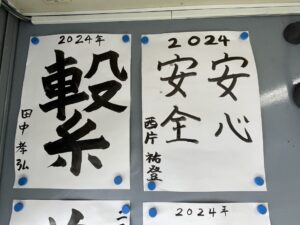 2024年
繋
田中孝弘
2024
安心
安全
西片祐登
2024年